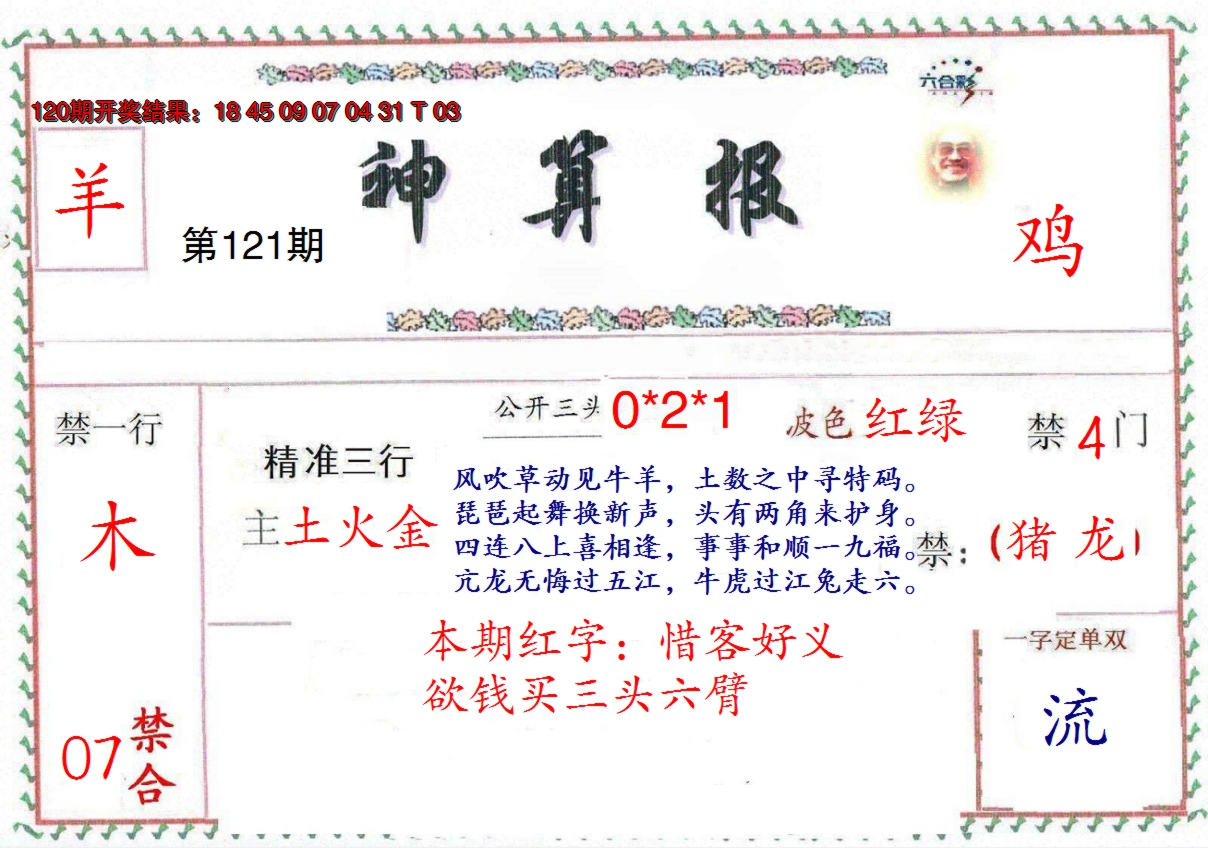 六合彩
120期开奖结果：18 45 09 07 04 31 T 03
神算报
羊
第121期
鸡
公开三头 0*2*1
波色 红绿
禁 4 门
禁一行
木
精准三行
主土火金
风吹草动见牛羊，土数之中寻特码。
琵琶起舞换新声，头有两角来护身。
四连八上喜相逢，事事和顺一九福。
亢龙无悔过五江，牛虎过江兔走六。
禁：（猪 龙）
本期红字：惜客好义
欲钱买三头六臂
一字定单双
流
07 禁合